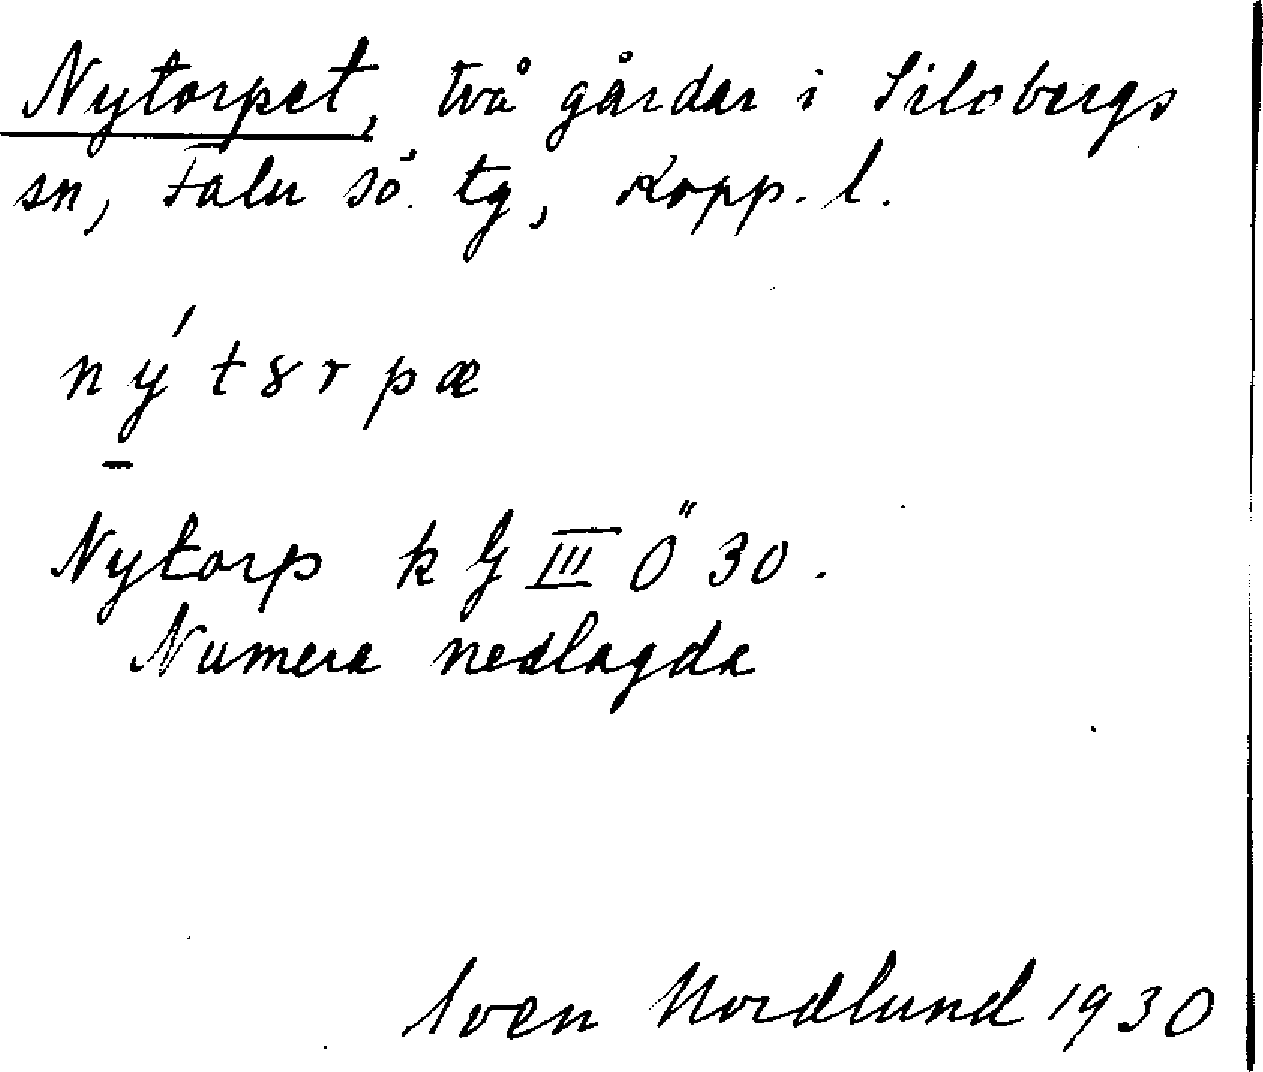 Nytorpet, två gårdar i Silvbergs
sn, Falu sö. tg, Kopp. l.
nýtȣrpæ
Nytorp k G III Ö 30.
Numera nedlagda
Sven Nordlund 1930